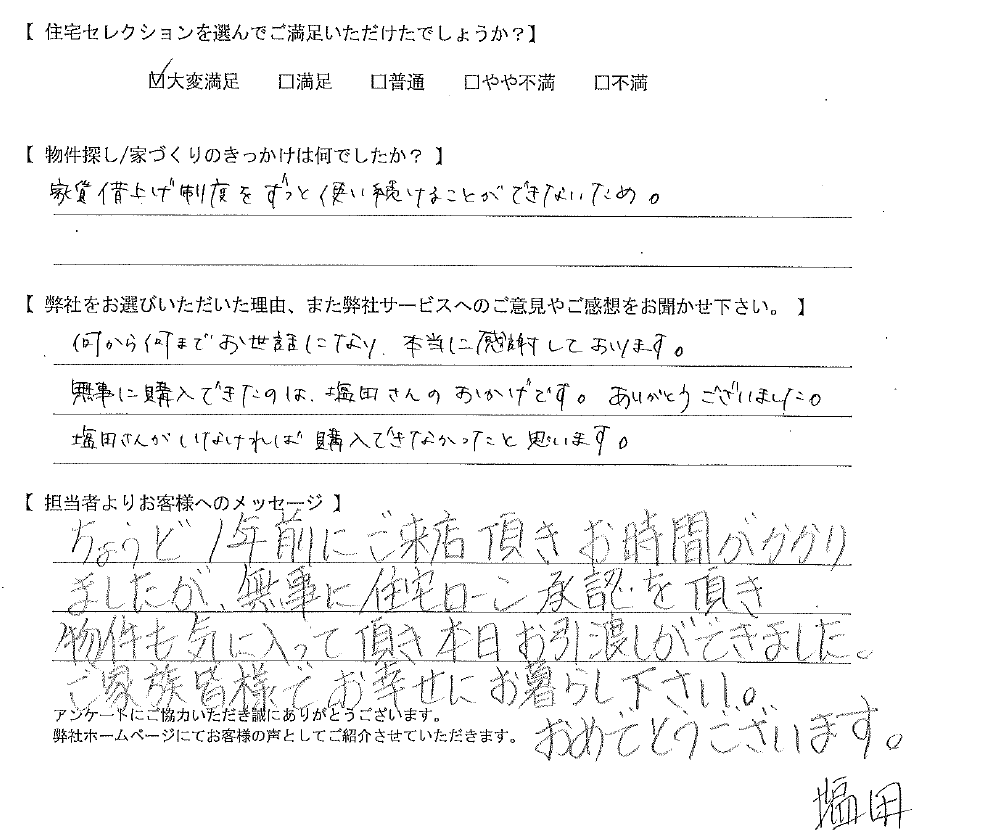 【 住宅セレクションを選んでご満足いただけたでしょうか？】
☑大変満足 □満足 □普通 □やや不満 □不満
【 物件探し/家づくりのきっかけは何でしたか？ 】
家賃借上げ制度をずっと使い続けることができないため。
【 弊社をお選びいただいた理由、また弊社サービスへのご意見やご感想をお聞かせ下さい。 】
何から何までお世話になり、本当に感謝しております。
無事に購入できたのは、塩田さんのおかげです。ありがとうございました。
塩田さんがいなければ購入できなかったと思います。
【 担当者よりお客様へのメッセージ 】
ちょうど1年前にご来店頂きお時間がかかり
ましたが、無事に住宅ローン承認を頂き
物件も気に入って頂き本日お引渡しができました。
ご家族皆様でお幸せにお暮らし下さい。
アンケートにご協力いただき誠にありがとうございます。
弊社ホームページにてお客様の声としてご紹介させていただきます。
おめでとうございます。
塩田